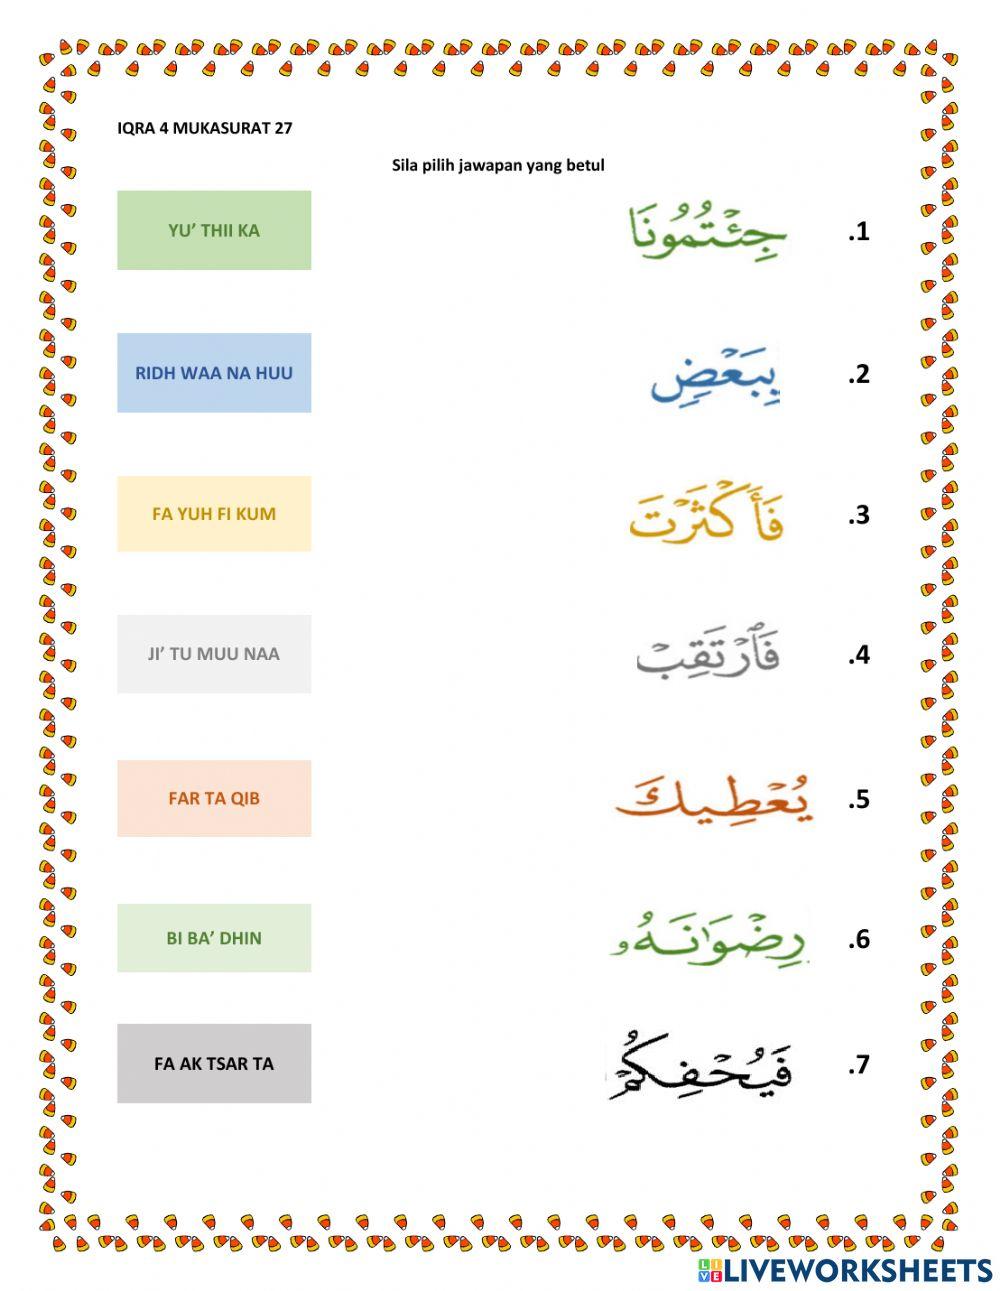 IQRA 4 MUKASURAT 27
Sila pilih jawapan yang betul
YU’ THII KA
جِئْتُمُونَا
.1
RIDH WAA NA HUU
بِبَعْضٍ
.2
FA YUH FI KUM
فَأَكْثَرْتَ
.3
JI’ TU MUU NAA
فَٱرْتَقِبْ
.4
FAR TA QIB
يُعْطِيكَ
.5
BI BA’ DHIN
رِضْوَٰنَهُۥ
.6
FA AK TSAR TA
فَيُحْفِكُمْ
.7
LIVEWORKSHEETS